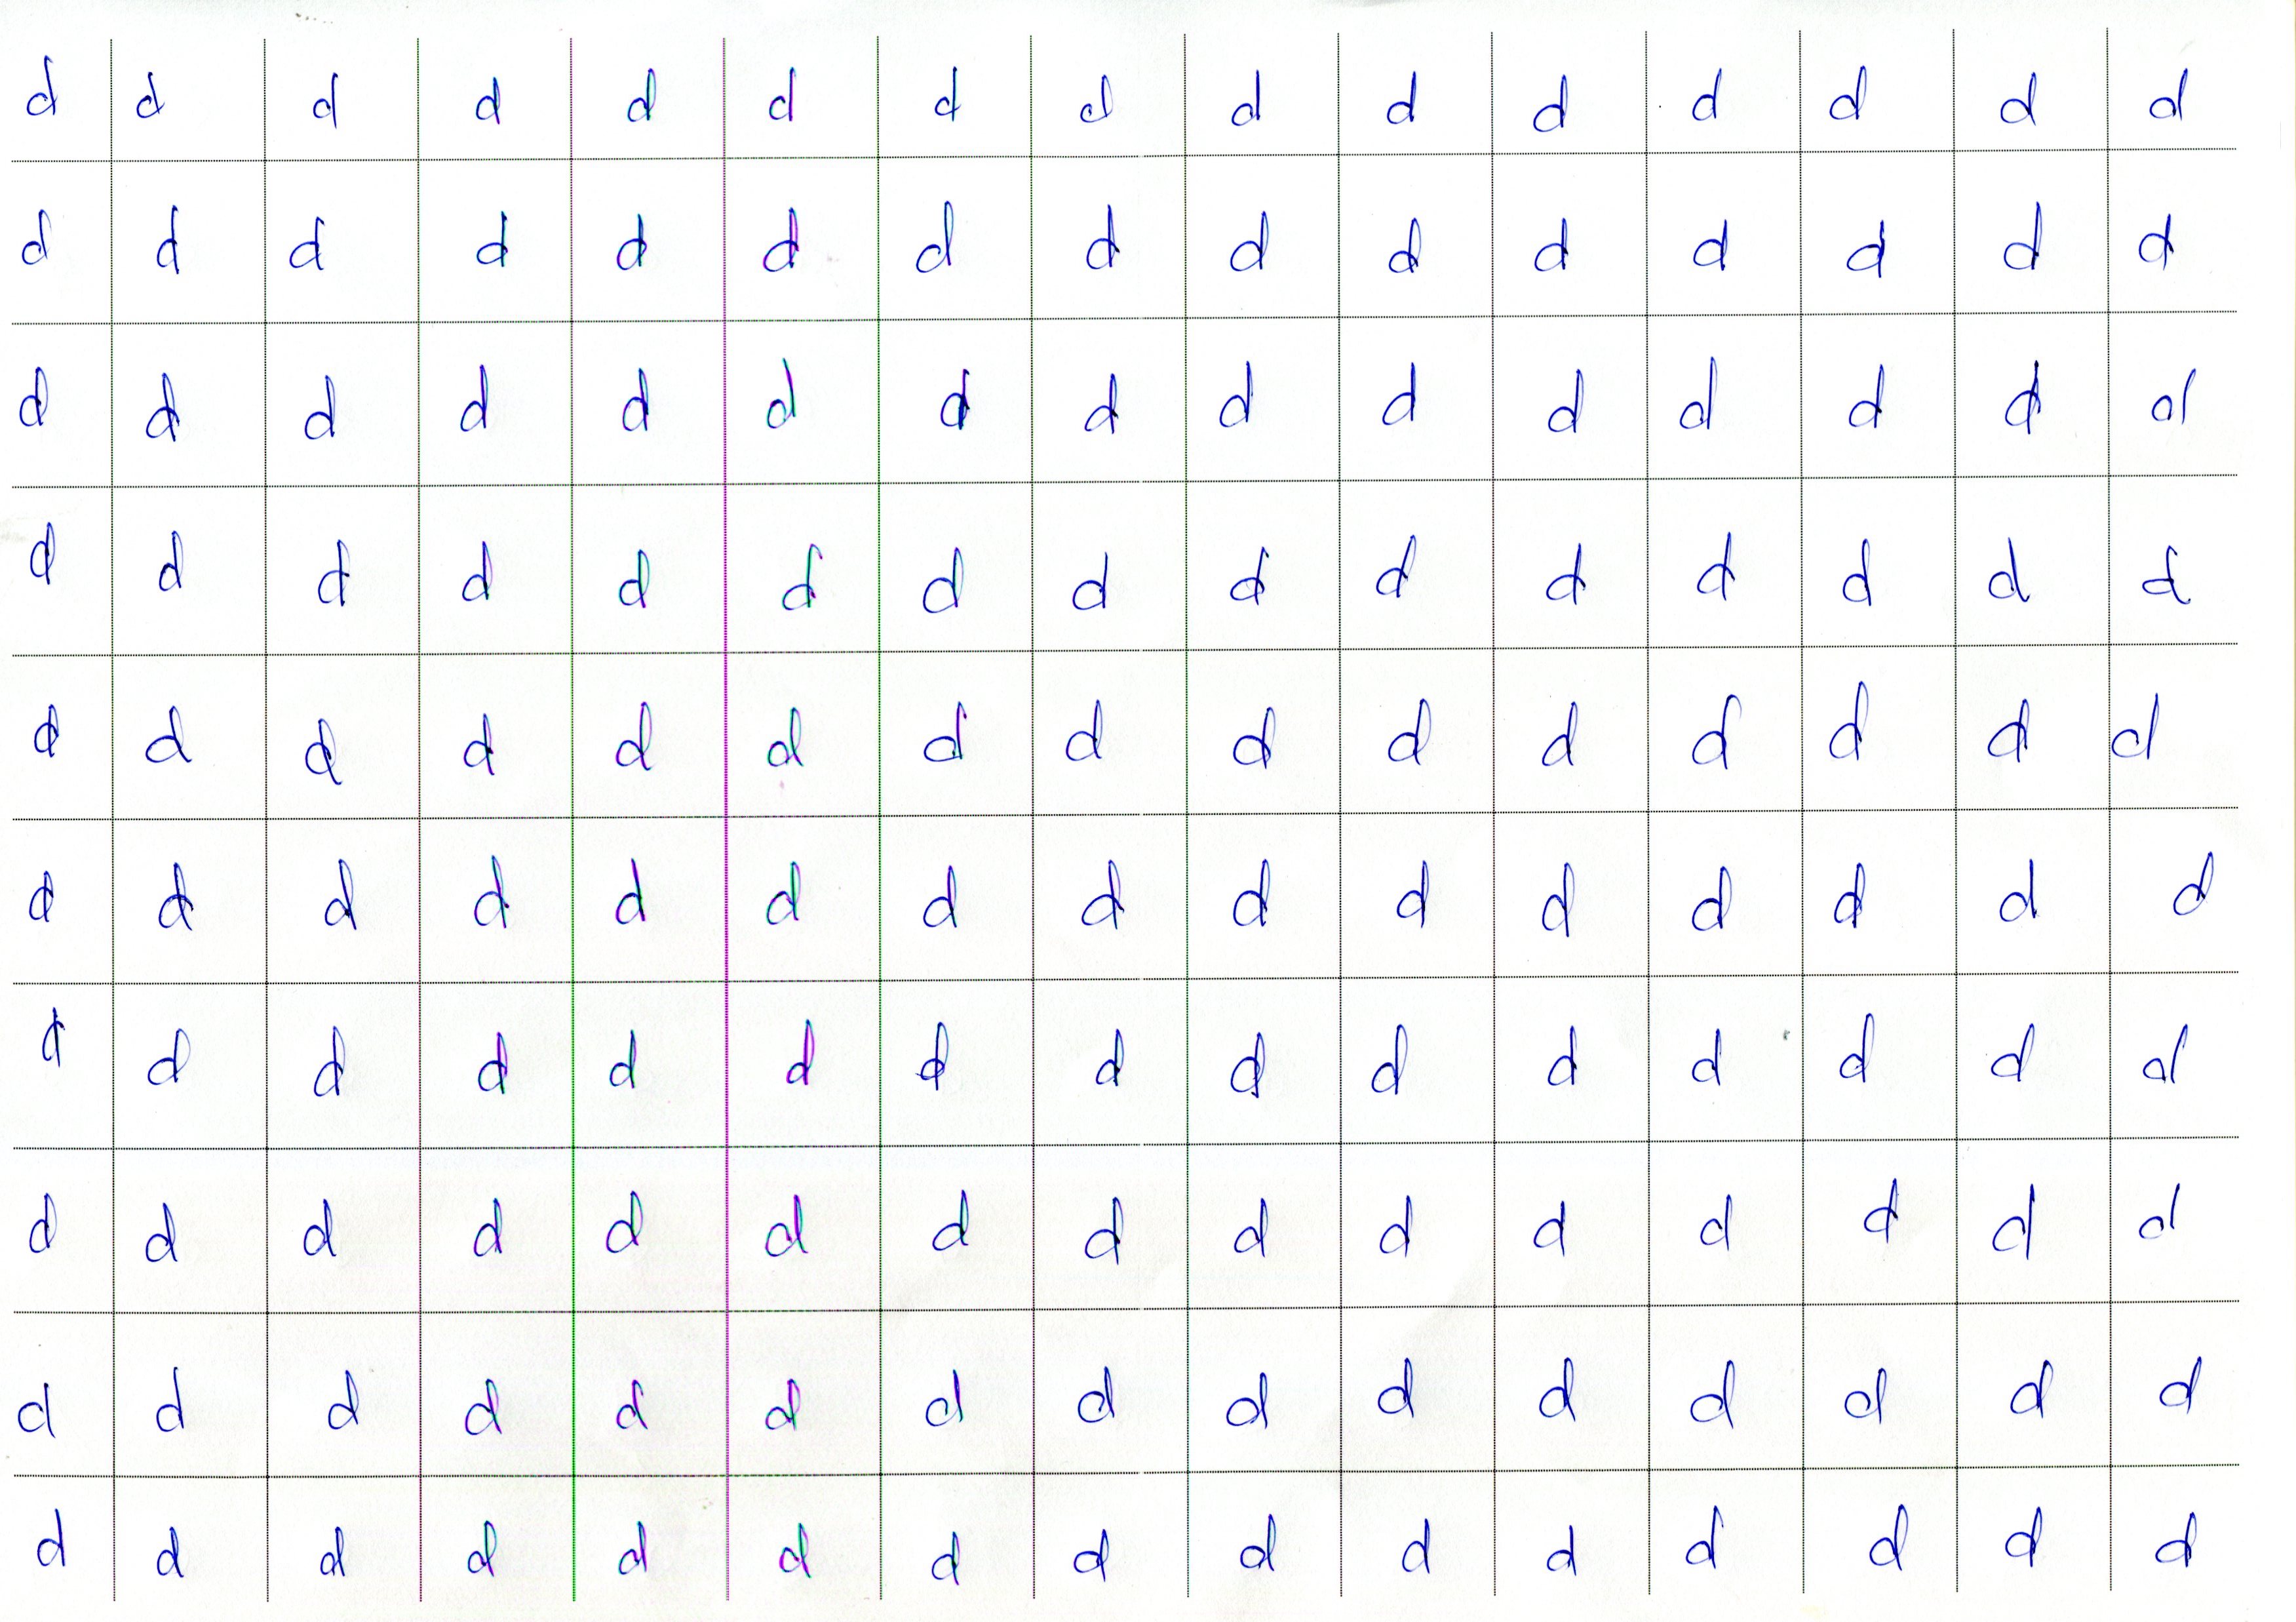 d d d d d d d d d d d d d d d
d d d d d d d d d d d d d d d
d d d d d d d d d d d d d d d
d d d d d d d d d d d d d d d
d d d d d d d d d d d d d d d
d d d d d d d d d d d d d d d
d d d d d d d d d d d d d d d
d d d d d d d d d d d d d d d
d d d d d d d d d d d d d d d
d d d d d d d d d d d d d d d